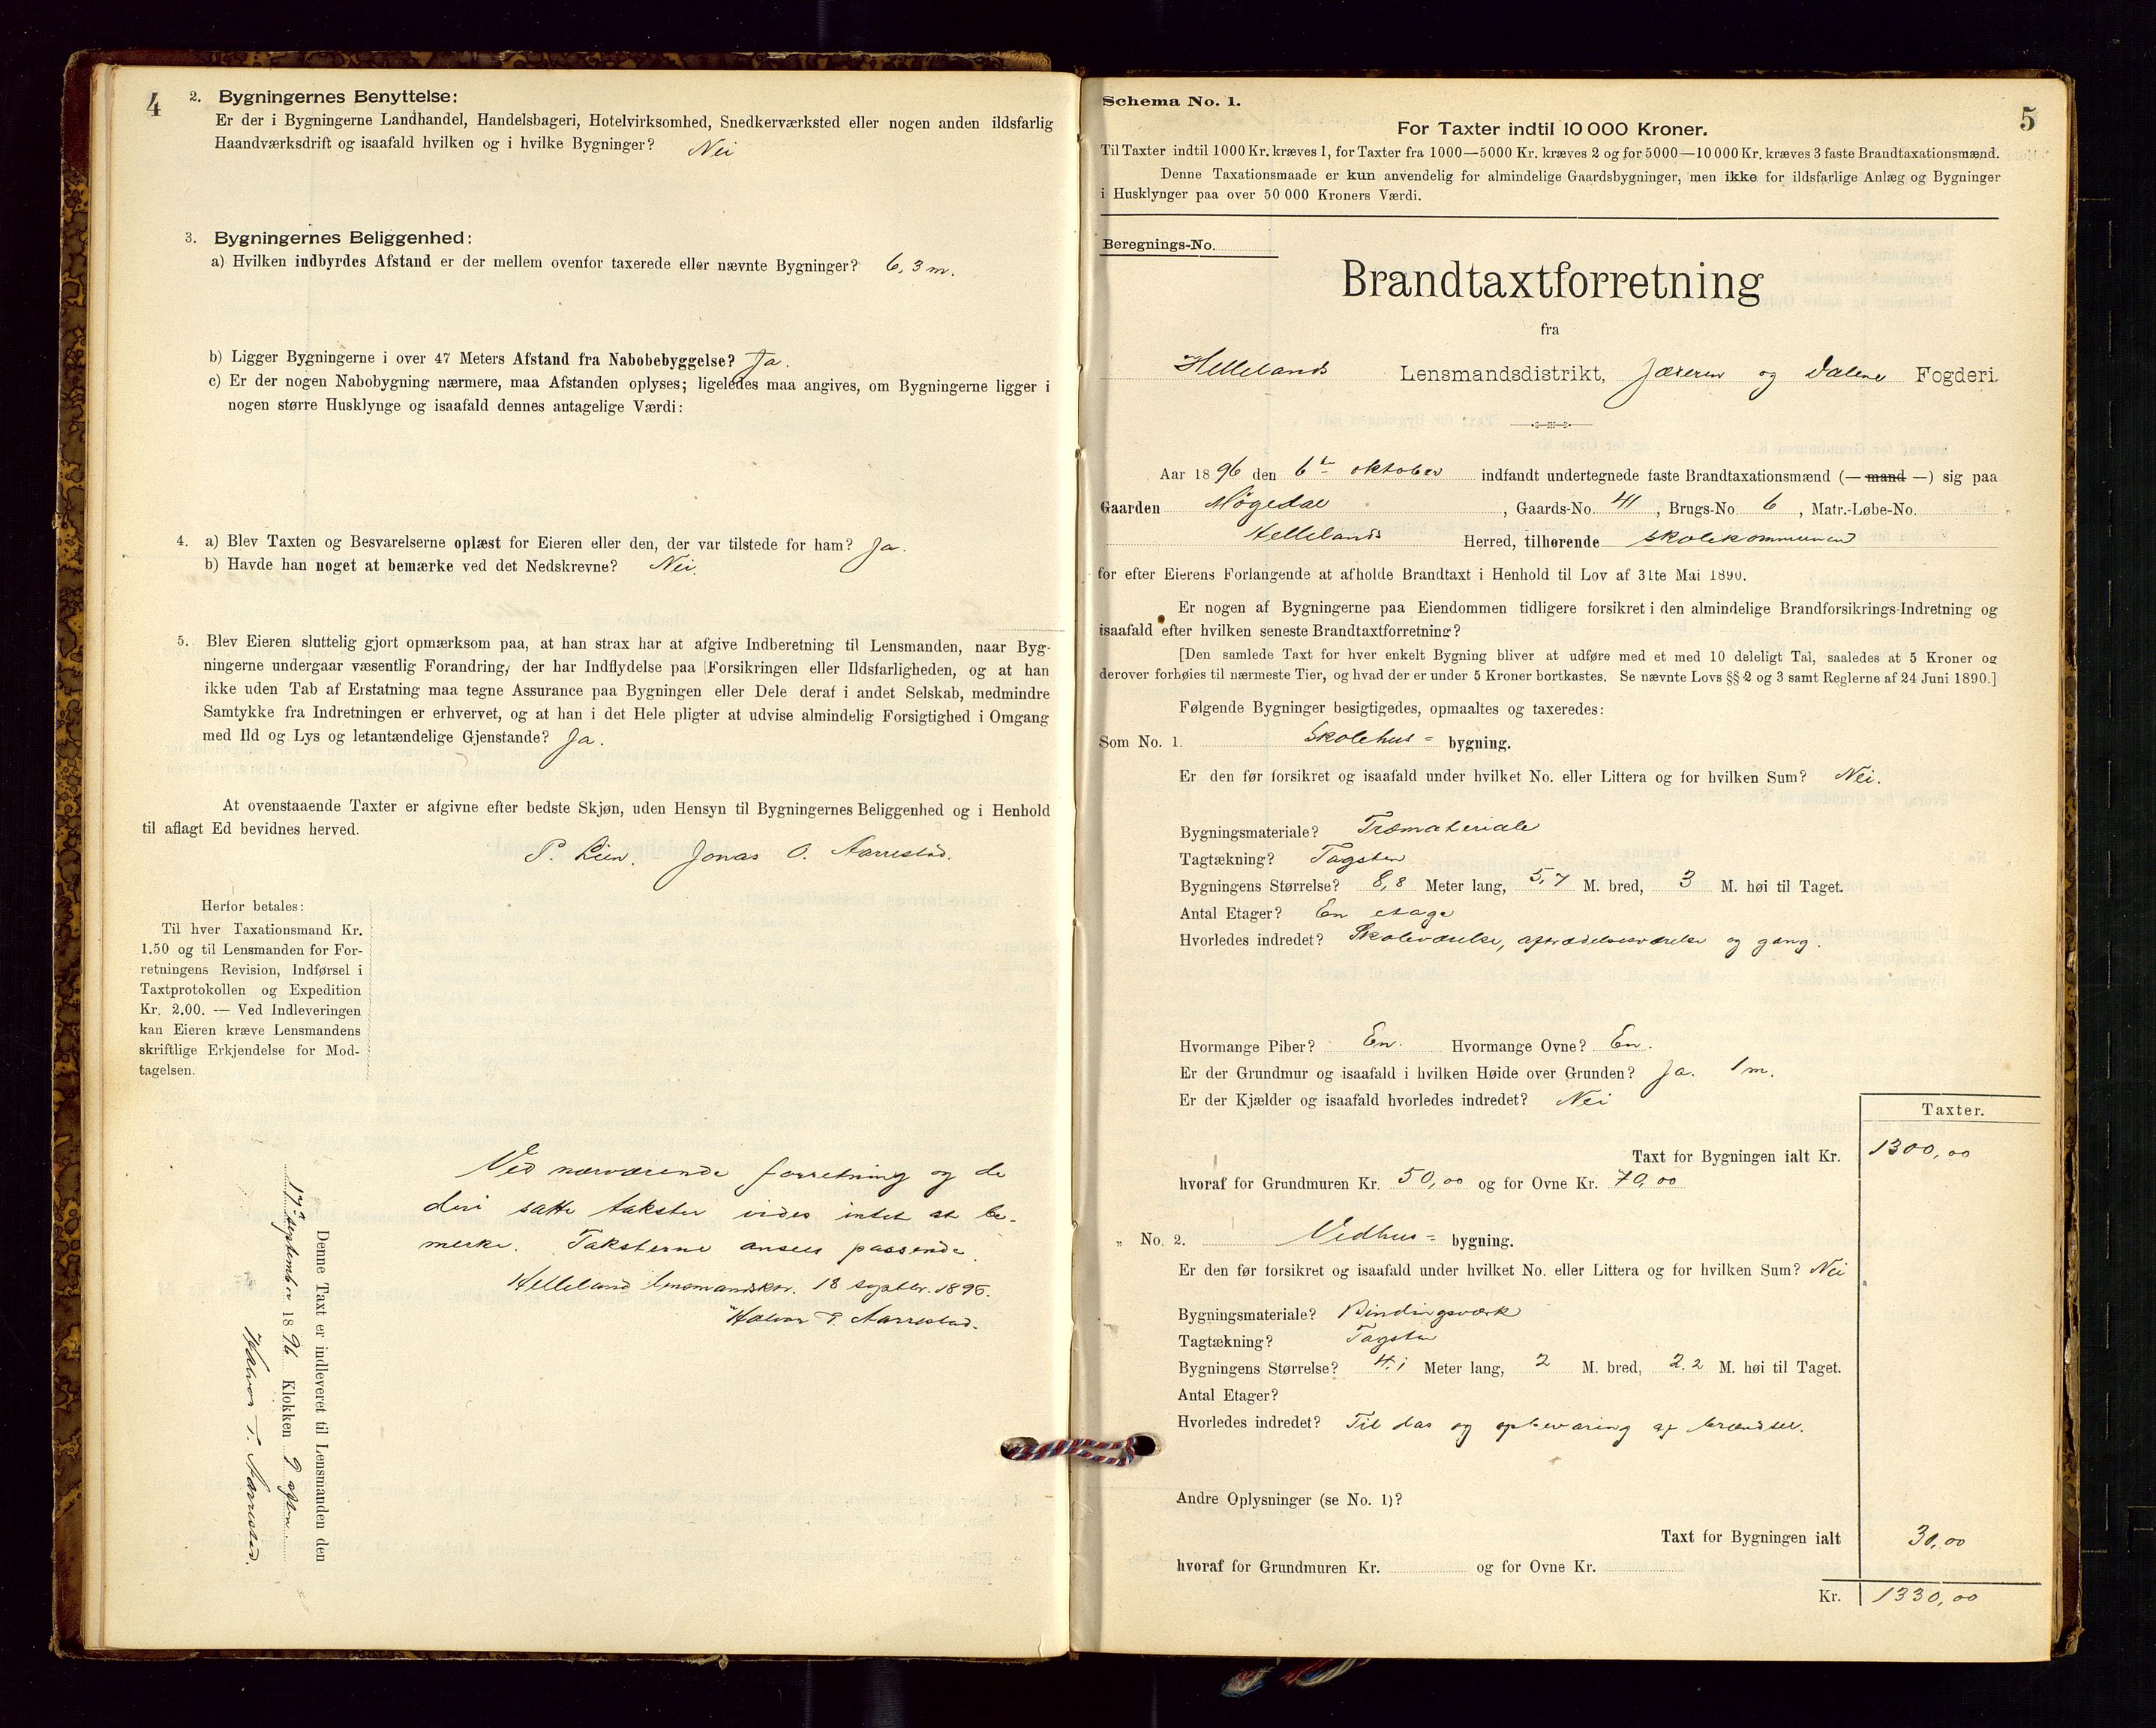 4
2. Bygningernes Benyttelse:
Er der i Bygningerne Landhandel, Handelsbageri, Hotelvirksomhed, Snedkerværksted eller nogen anden ildsfarlig
Haandværksdrift og isaafald hvilken og i hvilke Bygninger? Nei
3. Bygningernes Beliggenhed:
a) Hvilken indbyrdes Afstand er der mellem ovenfor taxerede eller nævnte Bygninger? 6,3 m.
b) Ligger Bygningerne i over 47 Meters Afstand fra Nabobebyggelse? Ja.
c) Er der nogen Nabobygning nærmere, maa Afstanden oplyses; ligeledes maa angives, om Bygningerne ligger i
nogen større Husklynge og isaafald dennes antagelige Værdi:
4. a) Blev Taxten og Besvarelserne oplæst for Eieren eller den, der var tilstede for ham? Ja.
b) Havde han noget at bemærke ved det Nedskrevne? Nei.
5. Blev Eieren sluttelig gjort opmærksom paa, at han strax har at afgive Indberetning til Lensmanden, naar Byg-
ningerne undergaar væsentlig Forandring, der har Indflydelse paa Forsikringen eller Ildsfarligheden, og at han
ikke uden Tab af Erstatning maa tegne Assurance paa Bygningen eller Dele deraf i andet Selskab, medmindre
Samtykke fra Indretningen er erhvervet, og at han i det Hele pligter at udvise almindelig Forsigtighed i Omgang
med Ild og Lys og letantændelige Gjenstande? Ja.
At ovenstaaende Taxter er afgivne efter bedste Skjøn, uden Hensyn til Bygningernes Beliggenhed og i Henhold
til aflagt Ed bevidnes herved.
P. Lien. Jonas O. Aarrestad.
Herfor betales:
Til hver Taxationsmand Kr.
1.50 og til Lensmanden for For-
retningens Revision, Indførsel i
Taxtprotokollen og Expedition
Kr. 2.00. — Ved Indleveringen
kan Eieren kræve Lensmandens
skriftlige Erkjendelse for Mod-
tagelsen.
Ved nærværende forretning og de
deri satte takster vides intet at be-
merke. Taksterne ansees passende.
Helleland lensmandskon. 18 septbr. 1896.
Halvor T. Aarrestad.
Denne Taxt er indleveret til Lensmanden den
17de september 1896 Klokken 9 aften.
Halvor T. Aarrestad.
5
Schema No. 1.
For Taxter indtil 10 000 Kroner.
Til Taxter indtil 1000 Kr. kræves 1, for Taxter fra 1000—5000 Kr. kræves 2 og for 5000—10 000 Kr. kræves 3 faste Brandtaxationsmænd.
Denne Taxationsmaade er kun anvendelig for almindelige Gaardsbygninger, men ikke for ildsfarlige Anlæg og Bygninger
i Husklynger paa over 50 000 Kroners Værdi.
Beregnings-No.
Brandtaxtforretning
fra
Hellelands Lensmandsdistrikt, Jæderen og Dalene Fogderi.
Aar 1896 den 6te oktober indfandt undertegnede faste Brandtaxationsmænd (— mand —) sig paa
Gaarden Møgedal, Gaards-No. 41, Brugs-No. 6, Matr.-Løbe-No.
Hellelands Herred, tilhørende skolekommunen
for efter Eierens Forlangende at afholde Brandtaxt i Henhold til Lov af 31te Mai 1890.
Er nogen af Bygningerne paa Eiendommen tidligere forsikret i den almindelige Brandforsikrings-Indretning og
isaafald efter hvilken seneste Brandtaxtforretning?
[Den samlede Taxt for hver enkelt Bygning bliver at udføre med et med 10 deleligt Tal, saaledes at 5 Kroner og
derover forhøies til nærmeste Tier, og hvad der er under 5 Kroner bortkastes. Se nævnte Lovs §§ 2 og 3 samt Reglerne af 24 Juni 1890.]
Følgende Bygninger besigtigedes, opmaaltes og taxeredes:
Som No. 1. Skolehus- bygning.
Er den før forsikret og isaafald under hvilket No. eller Littera og for hvilken Sum? Nei.
Bygningsmateriale? Træmateriale
Tagtækning? Tagsten
Bygningens Størrelse? 8,8 Meter lang, 5,7 M. bred, 3 M. høi til Taget.
Antal Etager? En etage
Hvorledes indredet? Skoleværelse, aftrædelsesværelse og gang.
Hvormange Piber? En. Hvormange Ovne? En.
Er der Grundmur og isaafald i hvilken Høide over Grunden? Ja. 1 m.
Er der Kjælder og isaafald hvorledes indredet? Nei
Taxter.
Taxt for Bygningen ialt Kr. 1300,00
hvoraf for Grundmuren Kr. 50,00 og for Ovne Kr. 70,00
„ No. 2. Vedhus- bygning.
Er den før forsikret og isaafald under hvilket No. eller Littera og for hvilken Sum? Nei
Bygningsmateriale? Bindingsværk
Tagtækning? Tagsten
Bygningens Størrelse? 4.1 Meter lang, 2 M. bred, 2.2 M. høi til Taget.
Antal Etager?
Hvorledes indredet? Til das og opbevaring af brændsel.
Andre Oplysninger (se No. 1)?
Taxt for Bygningen ialt 30,00
hvoraf for Grundmuren Kr. og for Ovne Kr.
Kr. 1330,00